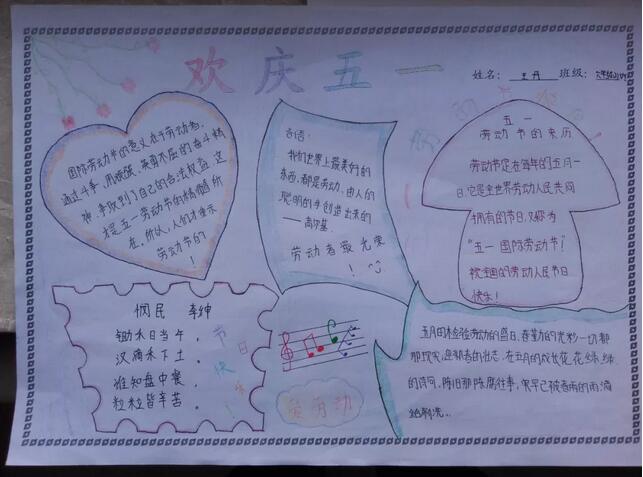 欢庆五一
姓名: 王丹 班级:
国际劳动节的意义在于劳动者,
通过斗争,用顽强、英勇不屈的奋斗精
神,争取到了自己的合法权益,这
是五一劳动节的精髓所
在,所以,人们才重示
劳动节的
!
名言:
我们世界上最美的的
东西,都是劳动、由人的
聪明的手创造出来的
——高尔基
劳动者最光荣
!
五一
劳动节的来历
劳动节定在每年的五月一
日,它是全世界劳动人民共同
拥有的节日,又称为
“五一国际劳动节”!
祝全国的劳动人民节日
快乐!
悯民 李绅
锄禾日当午,
汉滴禾下土。
谁知盘中餐,
粒粒皆辛苦。
节日快乐!
爱劳动
五月的检验劳动的盛日,春勤的光彩一切都
的诗河,陈旧那陈腐往事,早已被春雨的雨滴